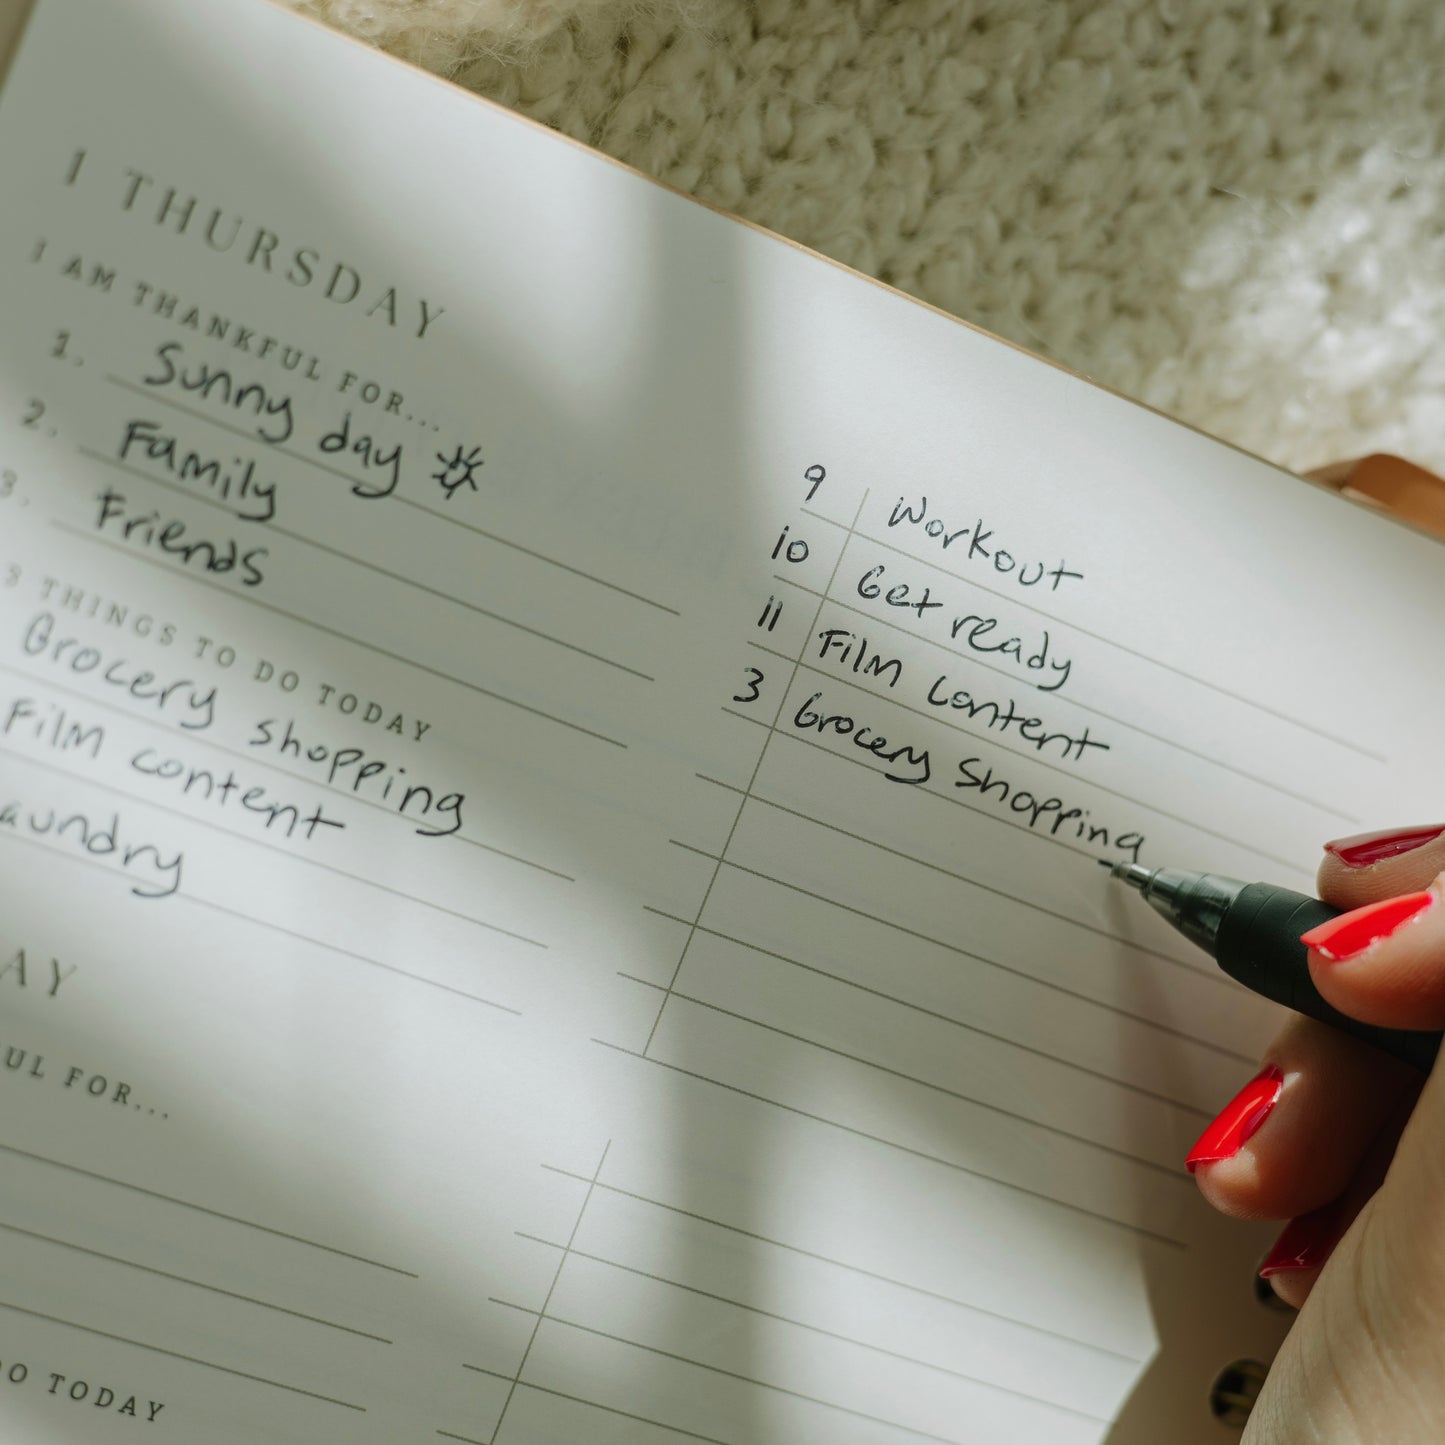 1 THURSDAY
I AM THANKFUL FOR...
1. Sunny day
2. Family
3. Friends
3 THINGS TO DO TODAY
Grocery shopping
Film content
aundry
9 Workout
10 Get ready
11 Film content
3 Grocery Shopping
AY
UL FOR...
DO TODAY